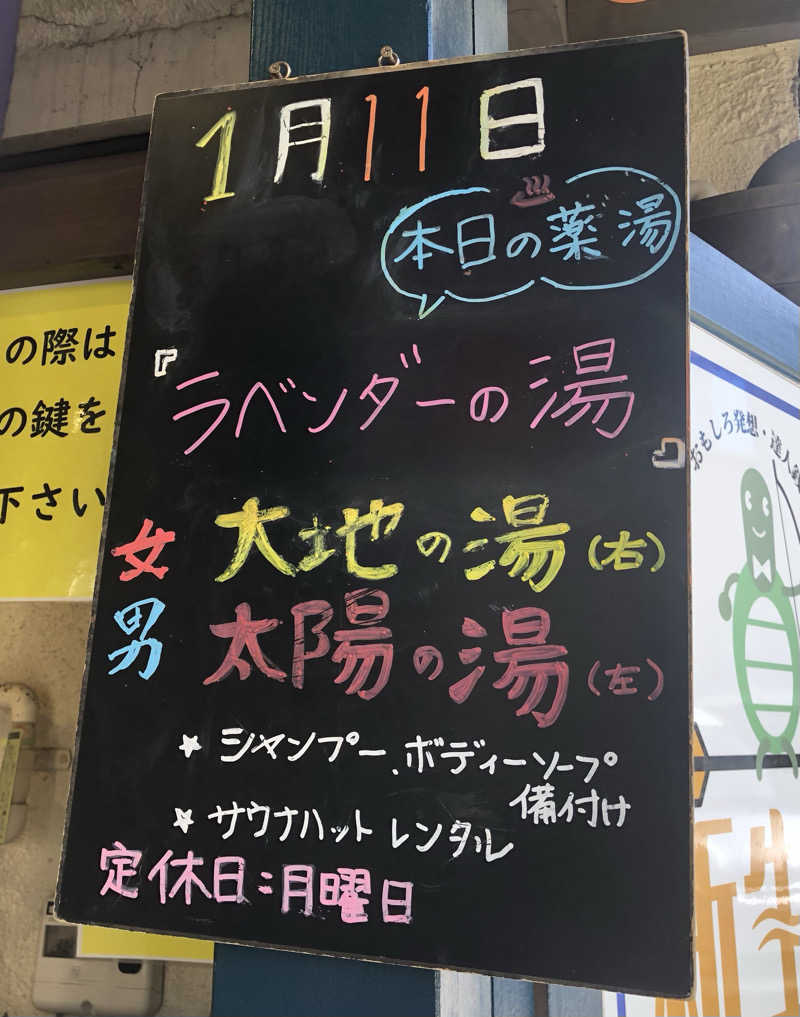 1月11日
本日の薬湯
『ラベンダーの湯』
女 大地の湯(右)
男 太陽の湯(左)
★ シャンプー、ボディーソープ
備付け
★ サウナハット レンタル
定休日:月曜日
の際は
の鍵を
下さい
おもしろ発想・達人